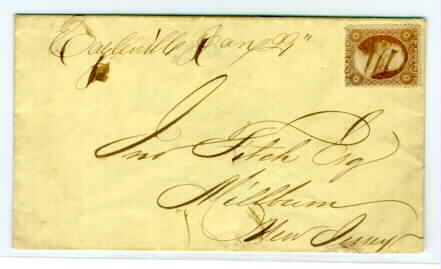 Eagleville Jan 29"
Jno Fitch Esq
Millburn
New Jersey